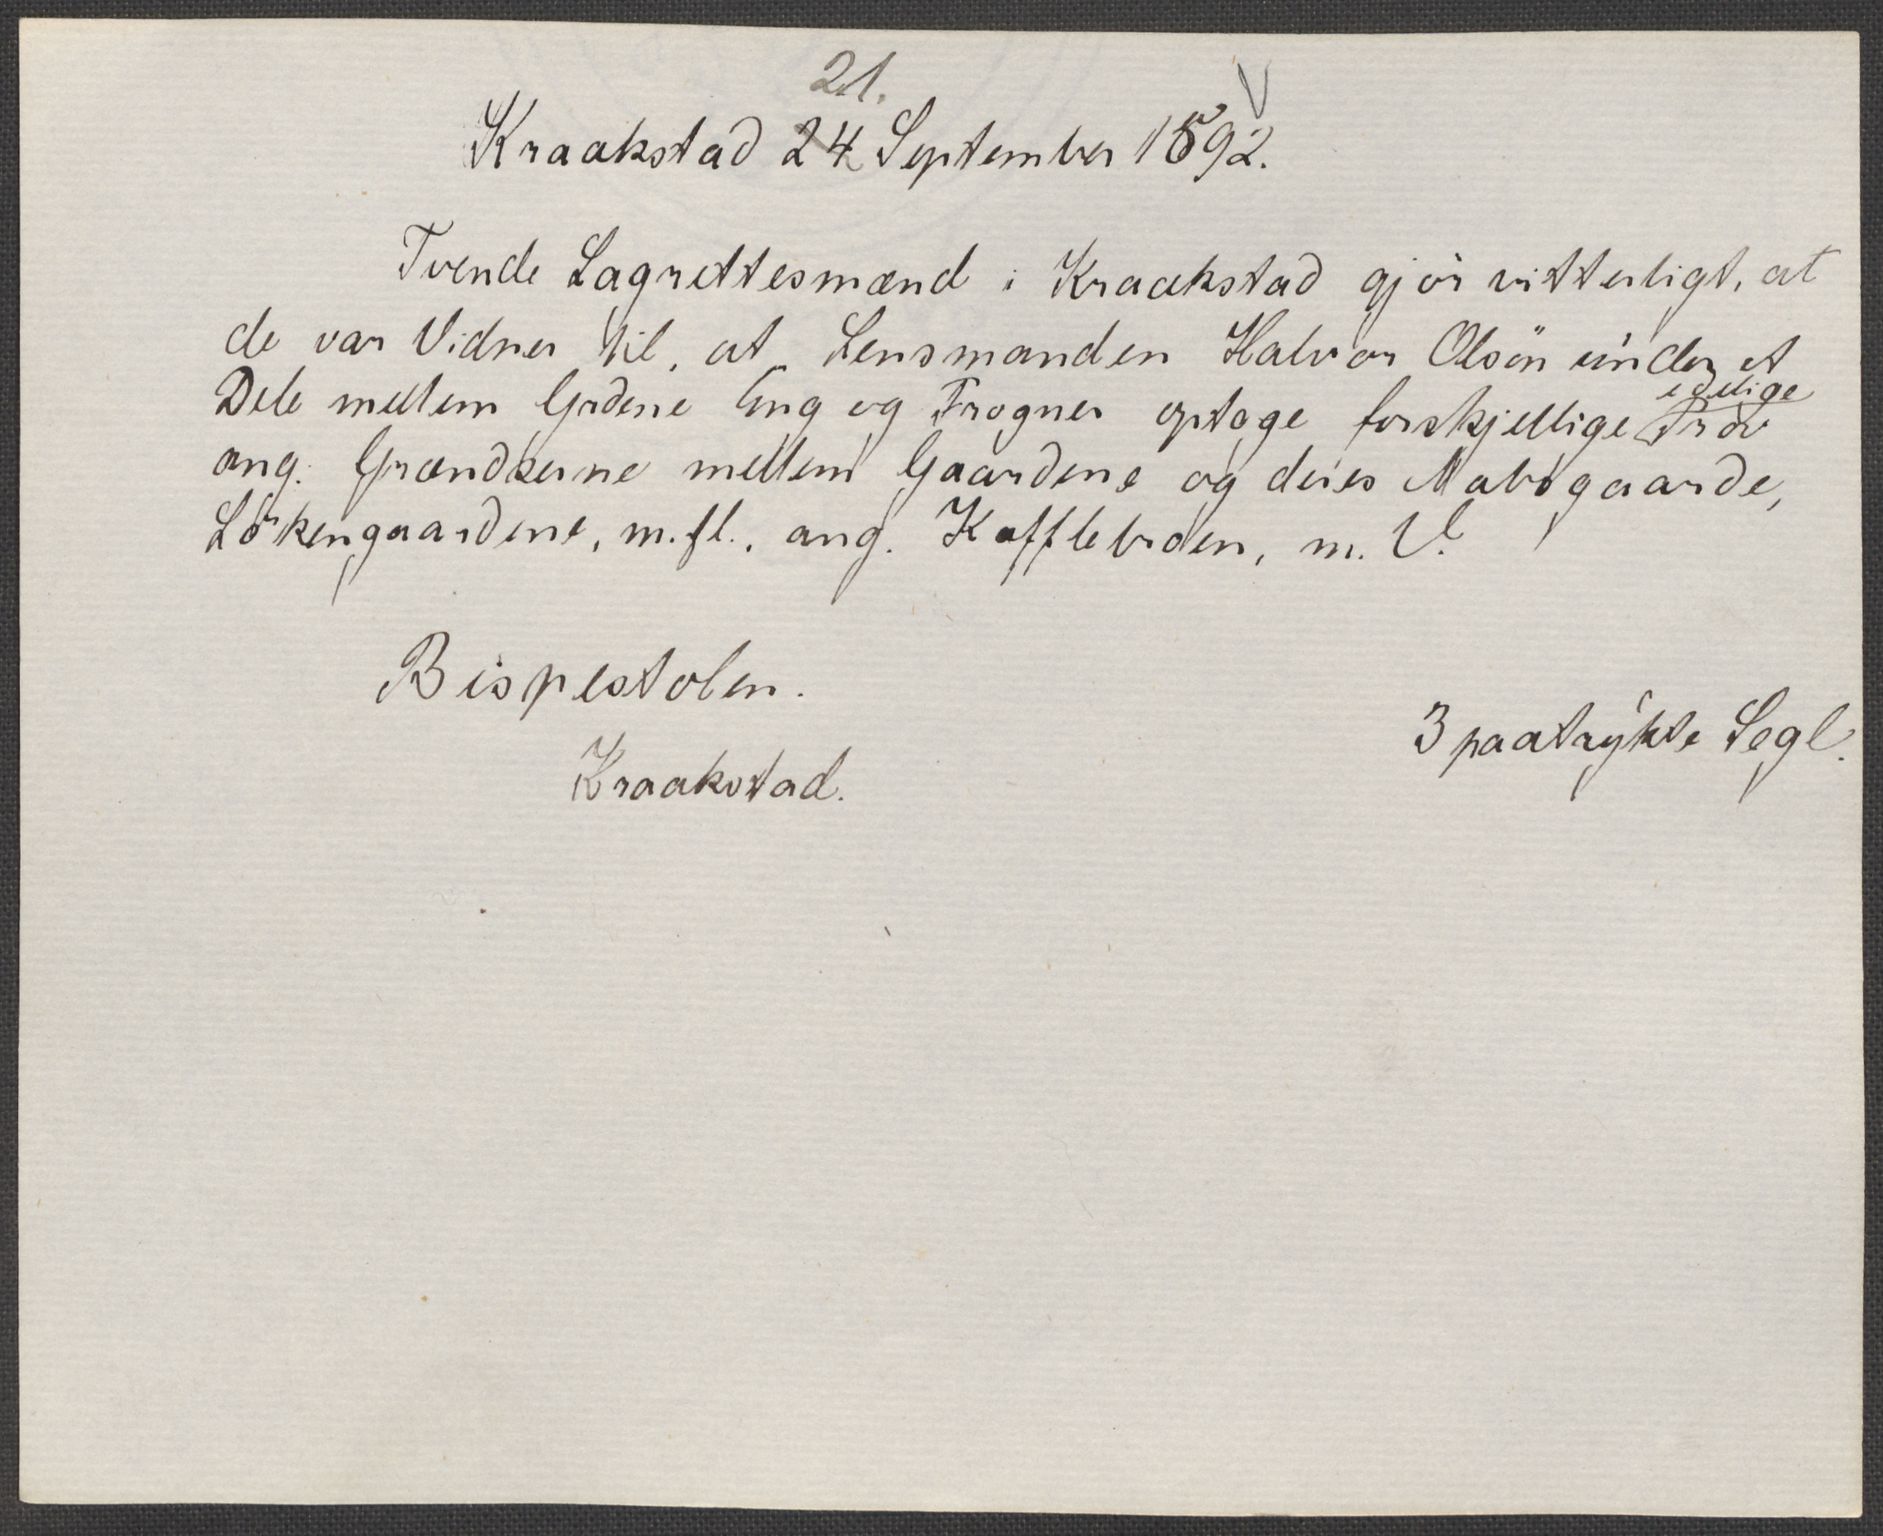 21. V
Kraakstad 24 September 1592.
Tvende Lagrettesmænd i Kraakstad gjör vitterligt, at
de var Vidner til, at Lensmanden Halvor Olsön under et
edelige
Dele mellem Grdene Eng og Frogner optoge forskjellige Pröv
ang. Grændserne mellem Gaardene og deres Nabogaarde,
Lökengaardene, m. fl., ang. Kafflebroen, m. V.
Bispestolen.
3 paatrykte Segl.
Kraakstad.